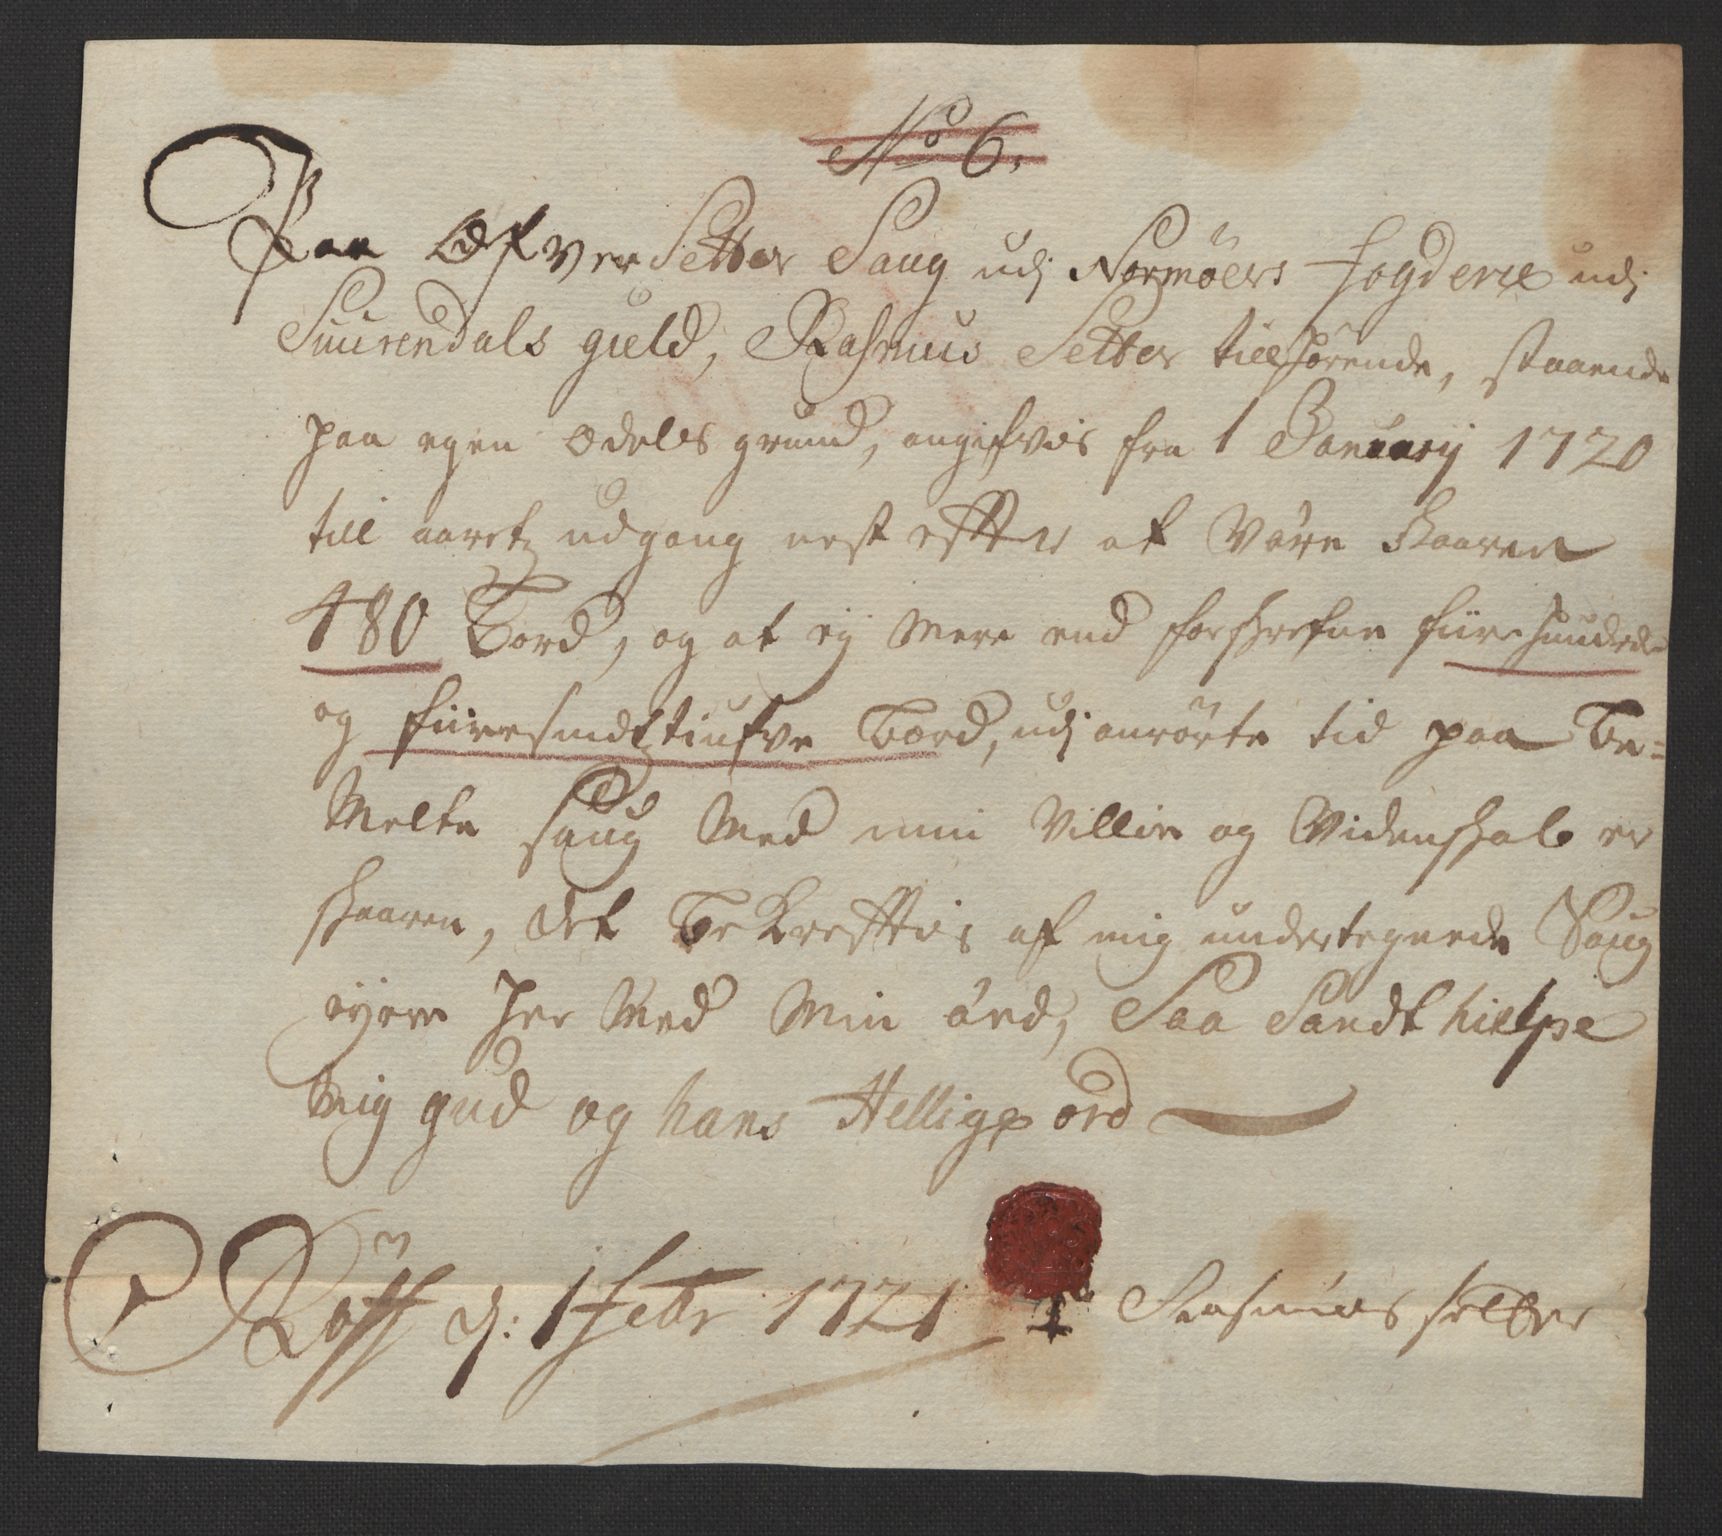 No 6.
Paa Øfver Setter Saug udj Normöers fogderie udj
Suurendals gield, Rasmus Setter tilhörende, staaende
paa egen odels grund, angifves fra 1 January 1720
till aaretz udgang nest effter at være skaaren
480 Bord, og at ej mere end forskrefne fiirehundrede
og fiiresindztiufve Bord, udj anrörte tid paa Be-
melte Saug med min villie og videnskab er
skaaren, det Bekrefftes af mig undertegnede Saug
ejere her med min æed, Saa Sandt hielpe
mig gud og hans Hellige ord
Röff d: 1 Febr 1721 Rasmus setter